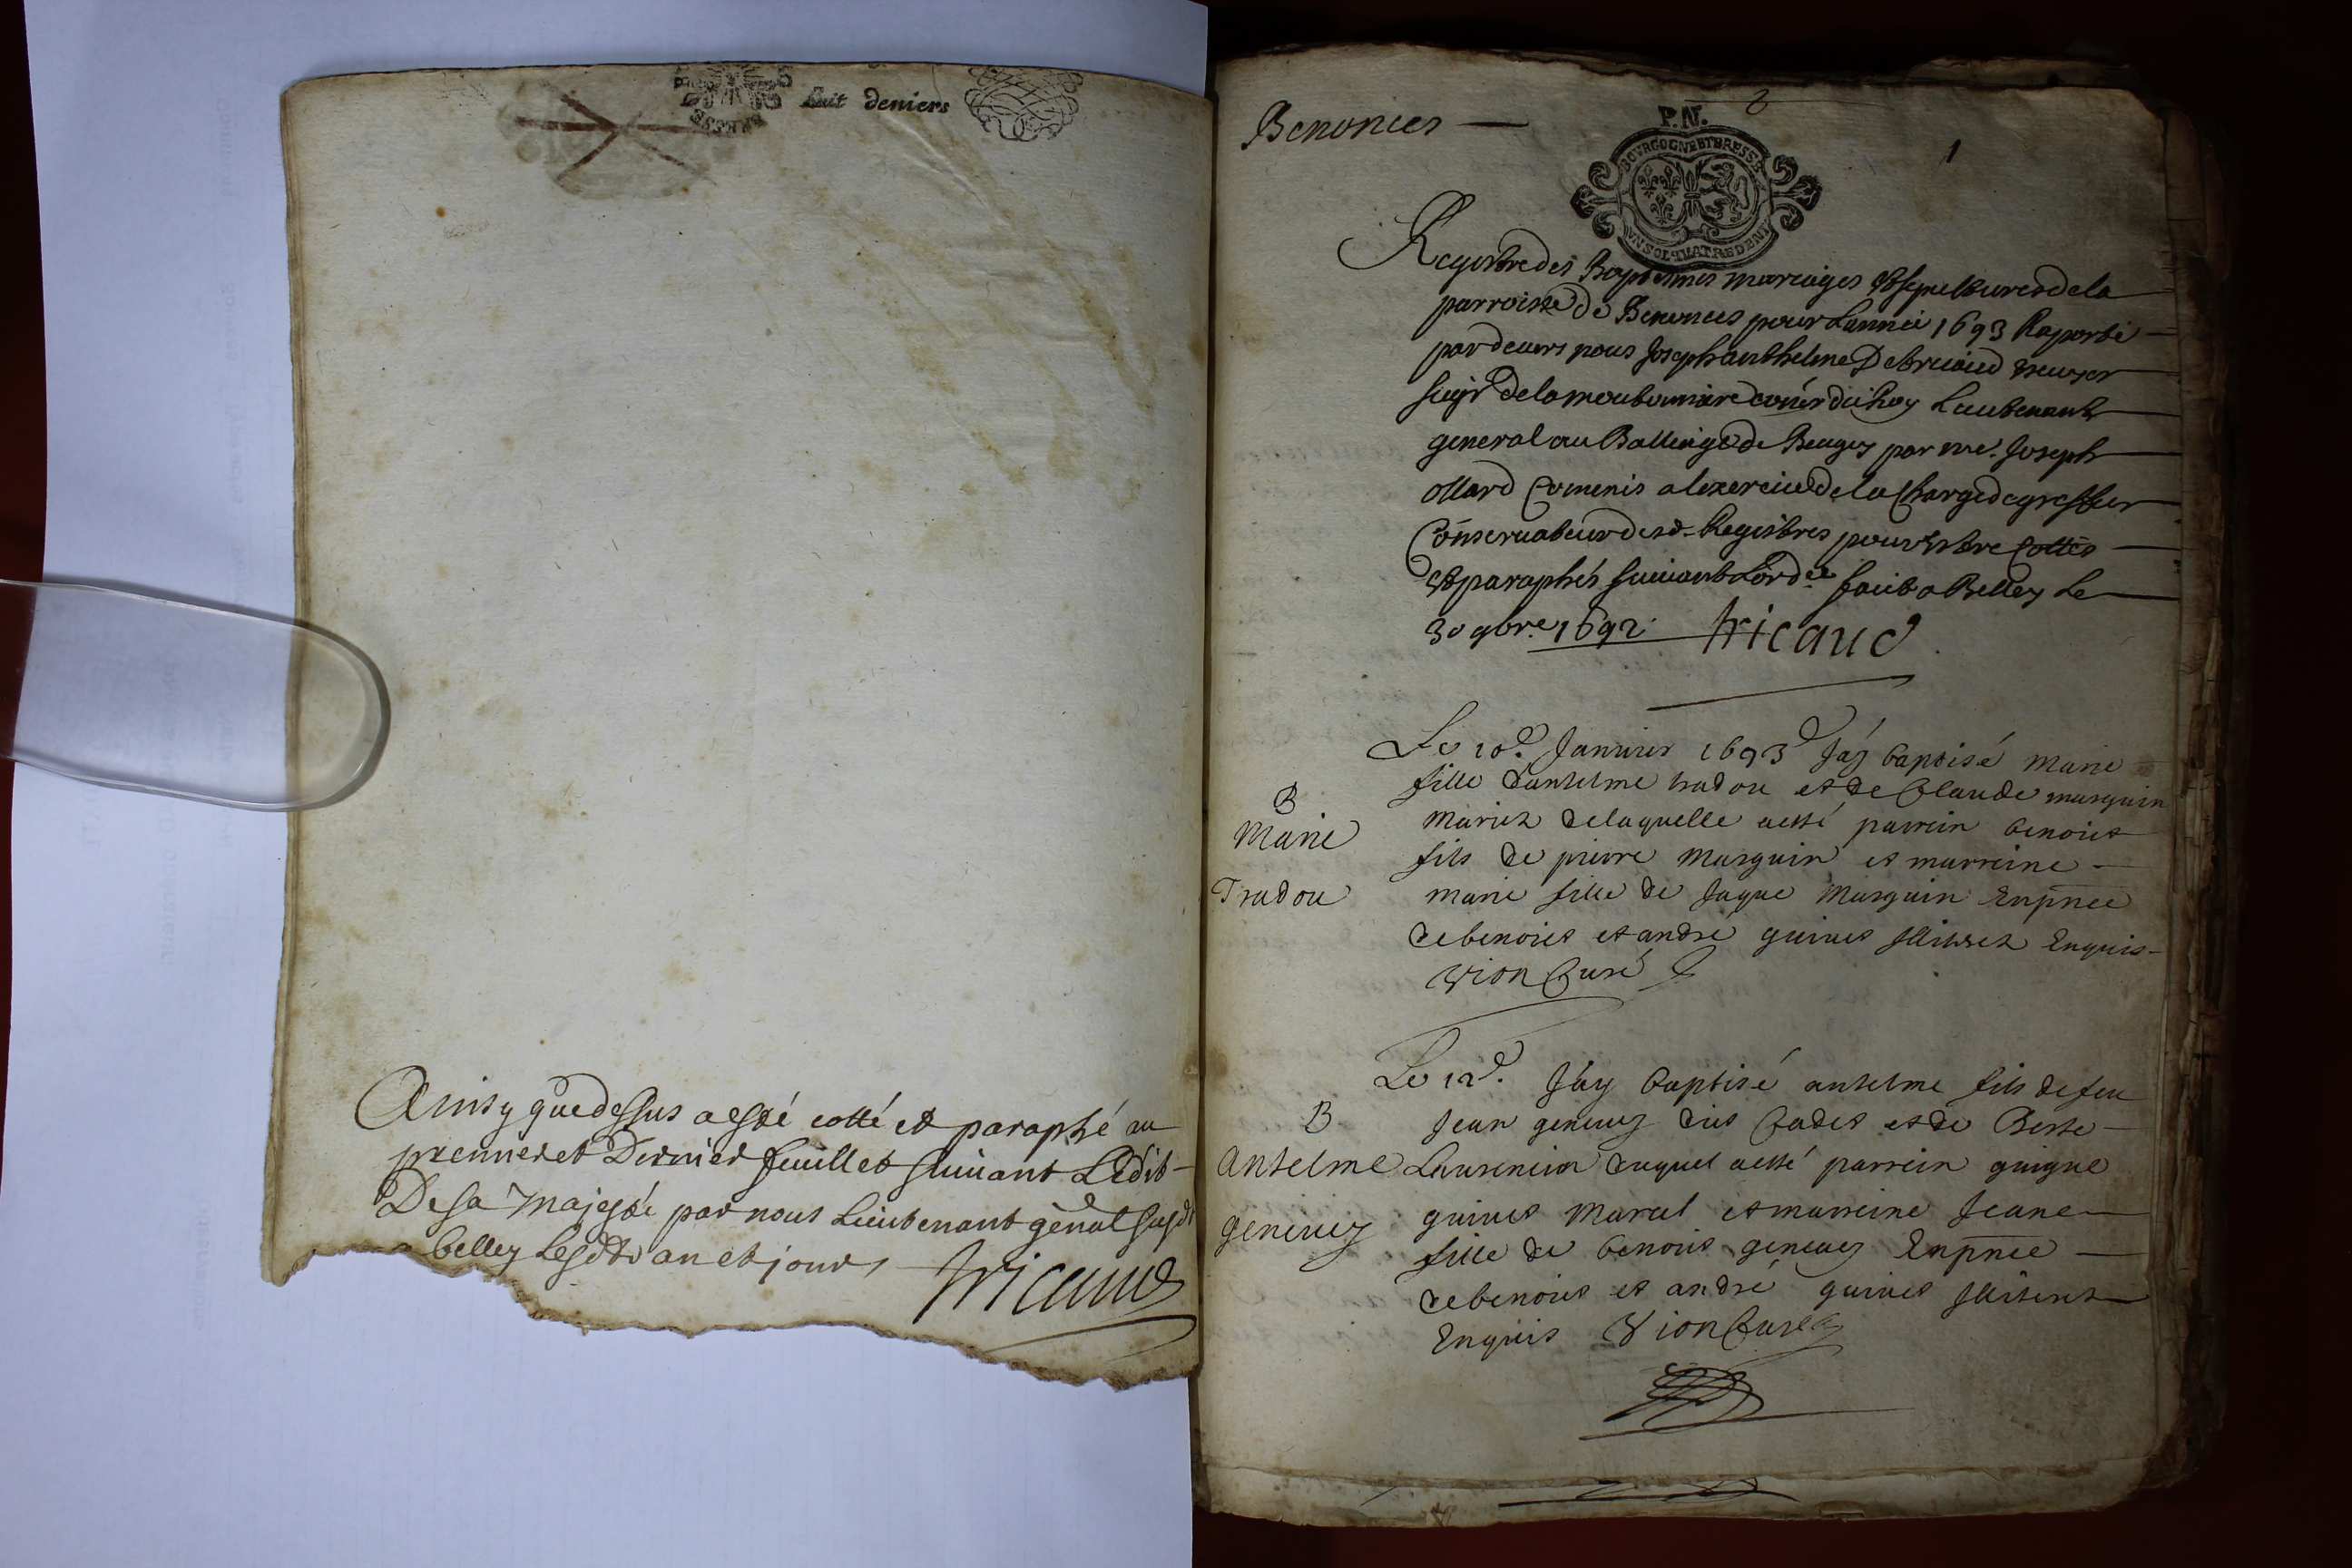 huit deniers
Ainsy que dessus a esté cotté et paraphé au
premier et Dernier feuillet suiuant L'Edit
De sa Majesté par nous Lieutenant genal susdt
belley les dts an et jour
tricaud
Benonces
2
1
P.N.
BOURGOGNE ET BRESSE
VN SOL QUATRE DEN
Registre des Baptesmes mariages et sepultures de la
parroisse de Benonces pour L'année 1693 Raporté
par deuers nous Joseph anthelme De tricaud escuyer
seigr de la conér du Roy Lieutenant
general au Balliage de Beugey par me. Joseph
ollard Commis a lexercice de la charge de greffier
Conseruateur desd. Registres pour Estre Cottés
et paraphés suiuant Lordce fait a Belley Le
30 9bre. 1692. tricaud
Le 10e. Januier 1693 J'ay baptisé marie
fille d'antelme tradou et de Claude marguin
mariez de laquelle a esté parrein benoiet
fils de pierre Marguin et marreine
marie fille de Jaque Marguin En pnce
de benoiet et andre guinet Enquis
Vion Curé
B
Marie
Tradou
Le 12e. J'ay baptisé antelme fils de feu
Jean geneuey dit Cadet et de
Laurencin duquel a esté parrein guigue
guinet Marcel et marreine Jeane
fille de benoiet geneuey En pnce
de benoiet et andré guinet
Enquis Vion Curé
B
Antelme
geneuey